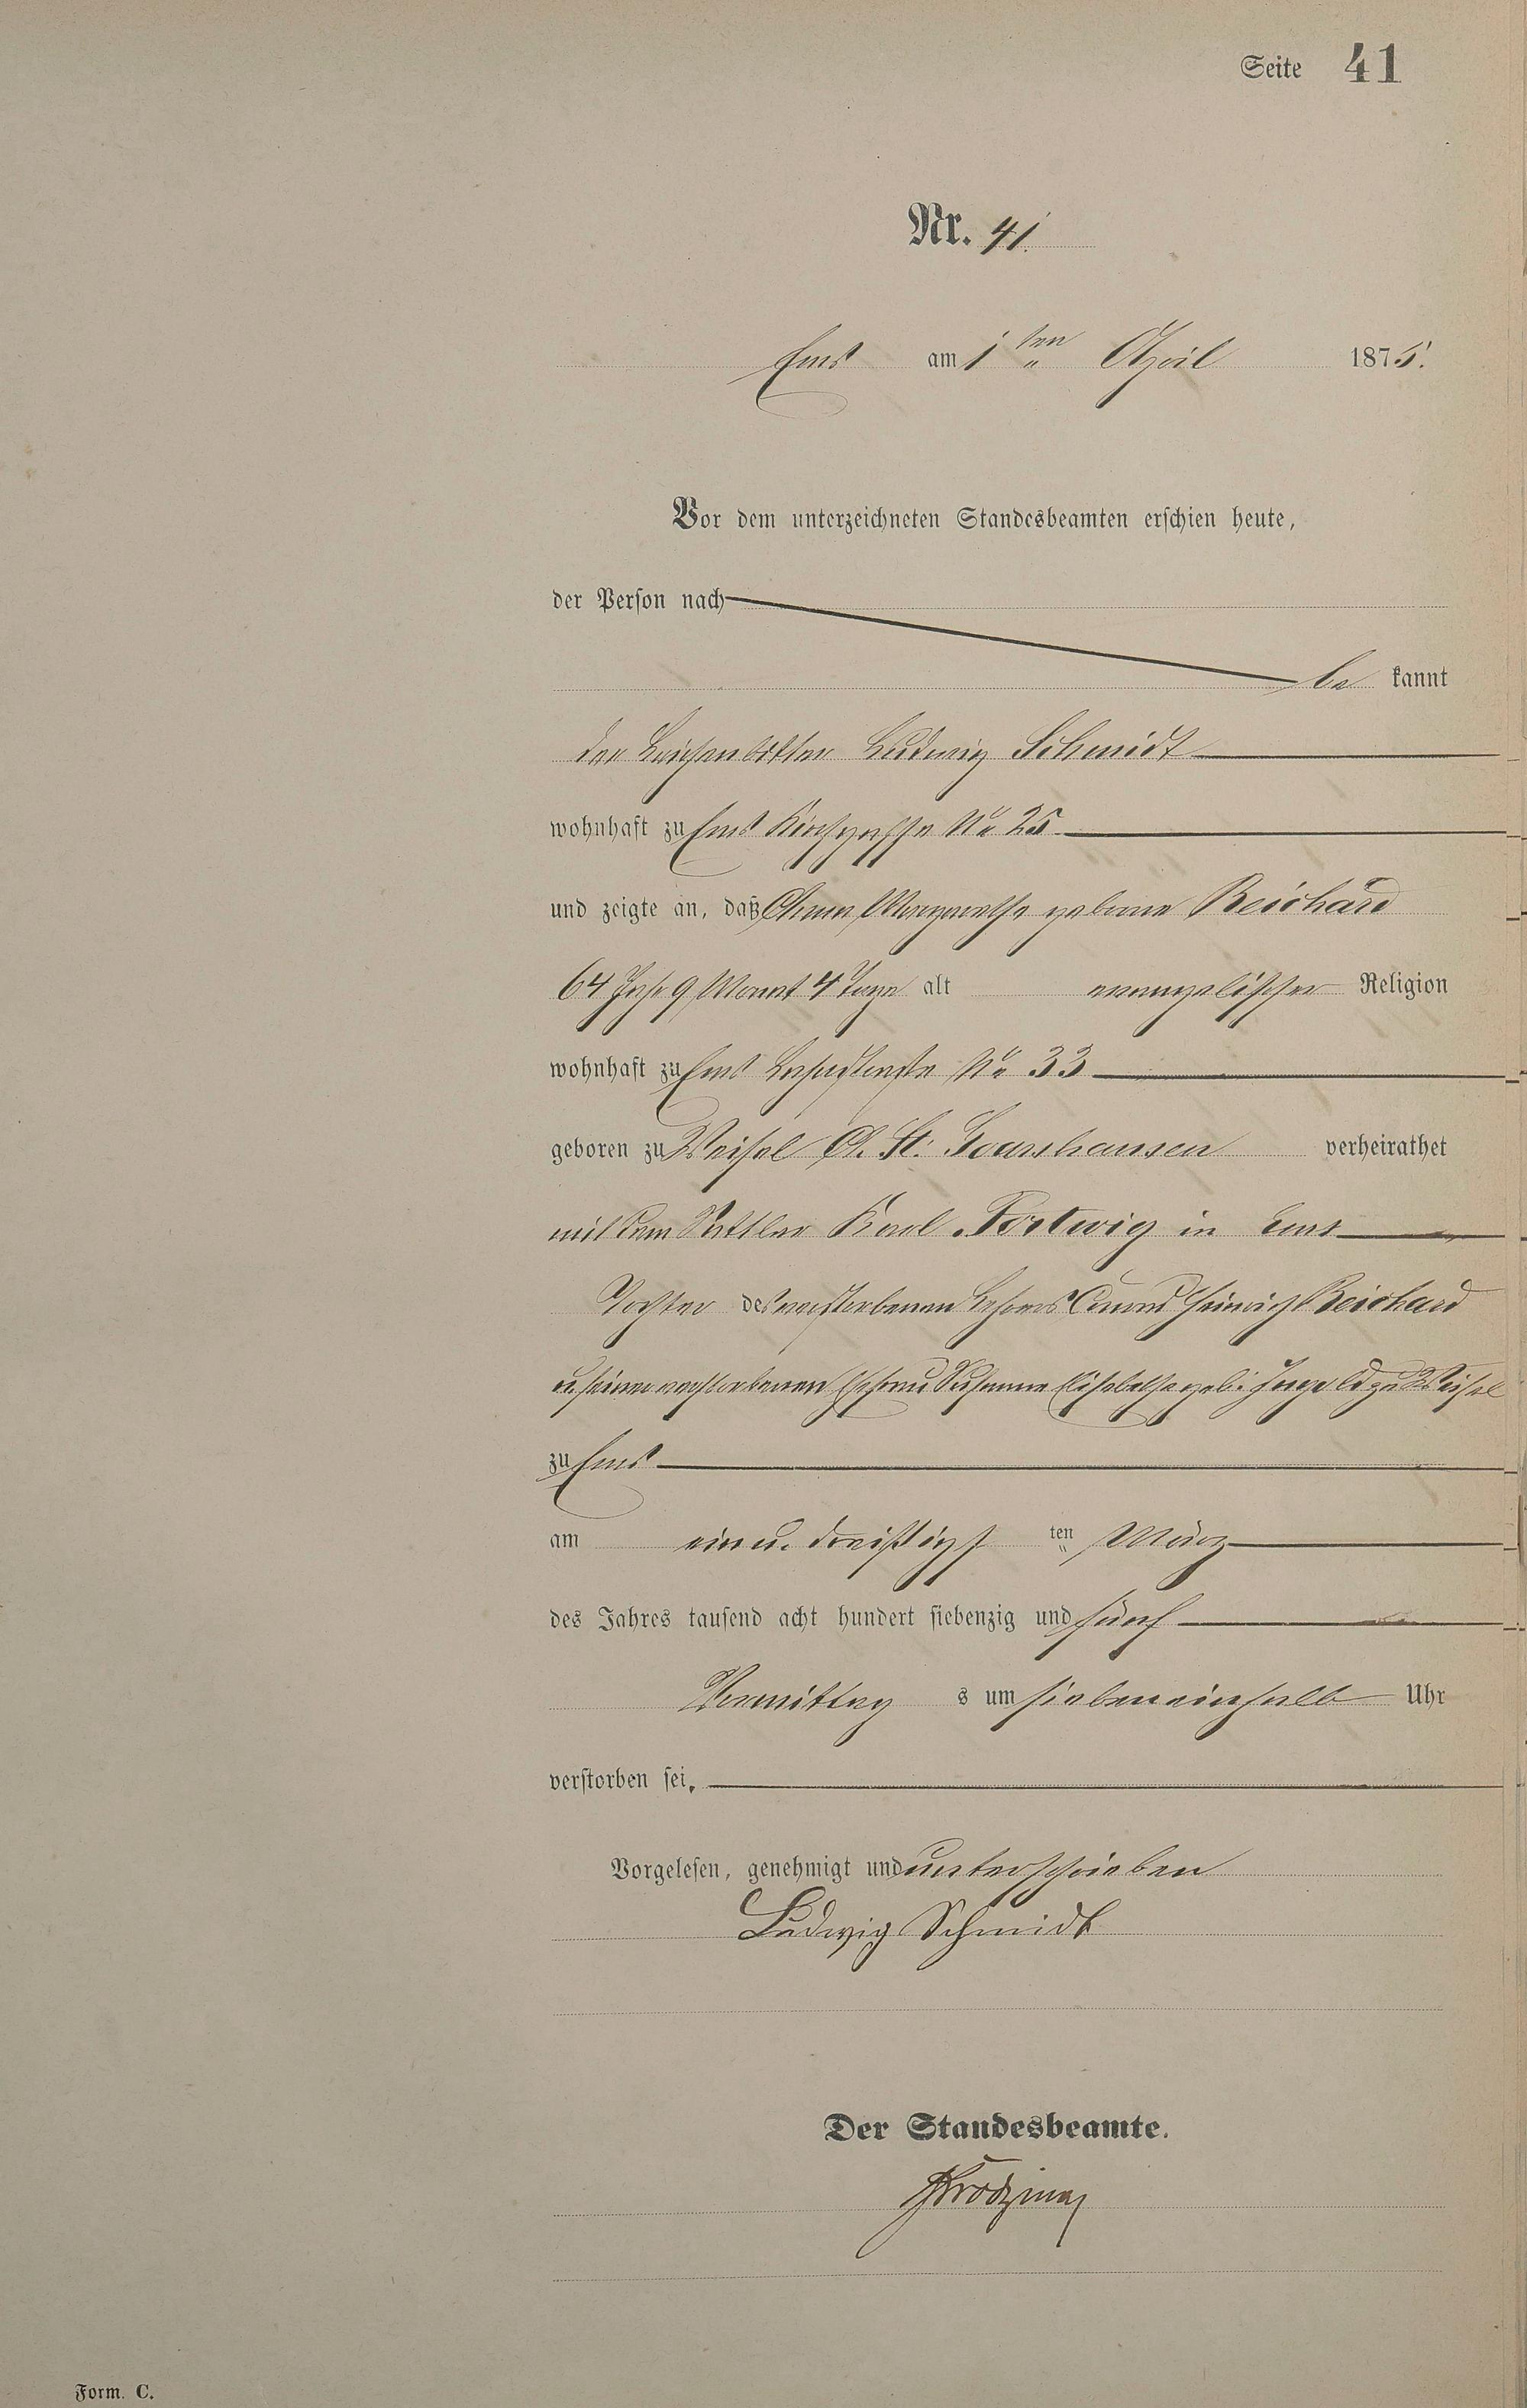 Seite 41
Nr. 41.
Ems am 1 ten April 1875.
Vor dem unterzeichneten Standesbeamten erschien heute,
der Person nach
be kannt
der Leichenbitter Ludwig Schmidt
wohnhaft zu Ems Kirchgasse No 25
und zeigte an, daß Anna Margarethe geborne Reichard
64 Jahr 9 Monat 4 Tage alt evangelischer Religion
wohnhaft zu Ems No 33
geboren zu Weisel A. St. Goarshausen verheirathet
mit dem Sattler Karl in Ems
Tochter des verstorbenen Lehrers Heinrich Reichard
u. seiner verstorbenen Ehefrau Susanne Elisabethe geb. zu Weisel
zu Ems
am ein u. dreißigst ten März
des Jahres tausend acht hundert siebenzig und fünf
Vormittag s um siebeneinhalb Uhr
verstorben sei.
Vorgelesen, genehmigt und unterschrieben
Ludwig Schmidt
Der Standesbeamte.
Form. C.